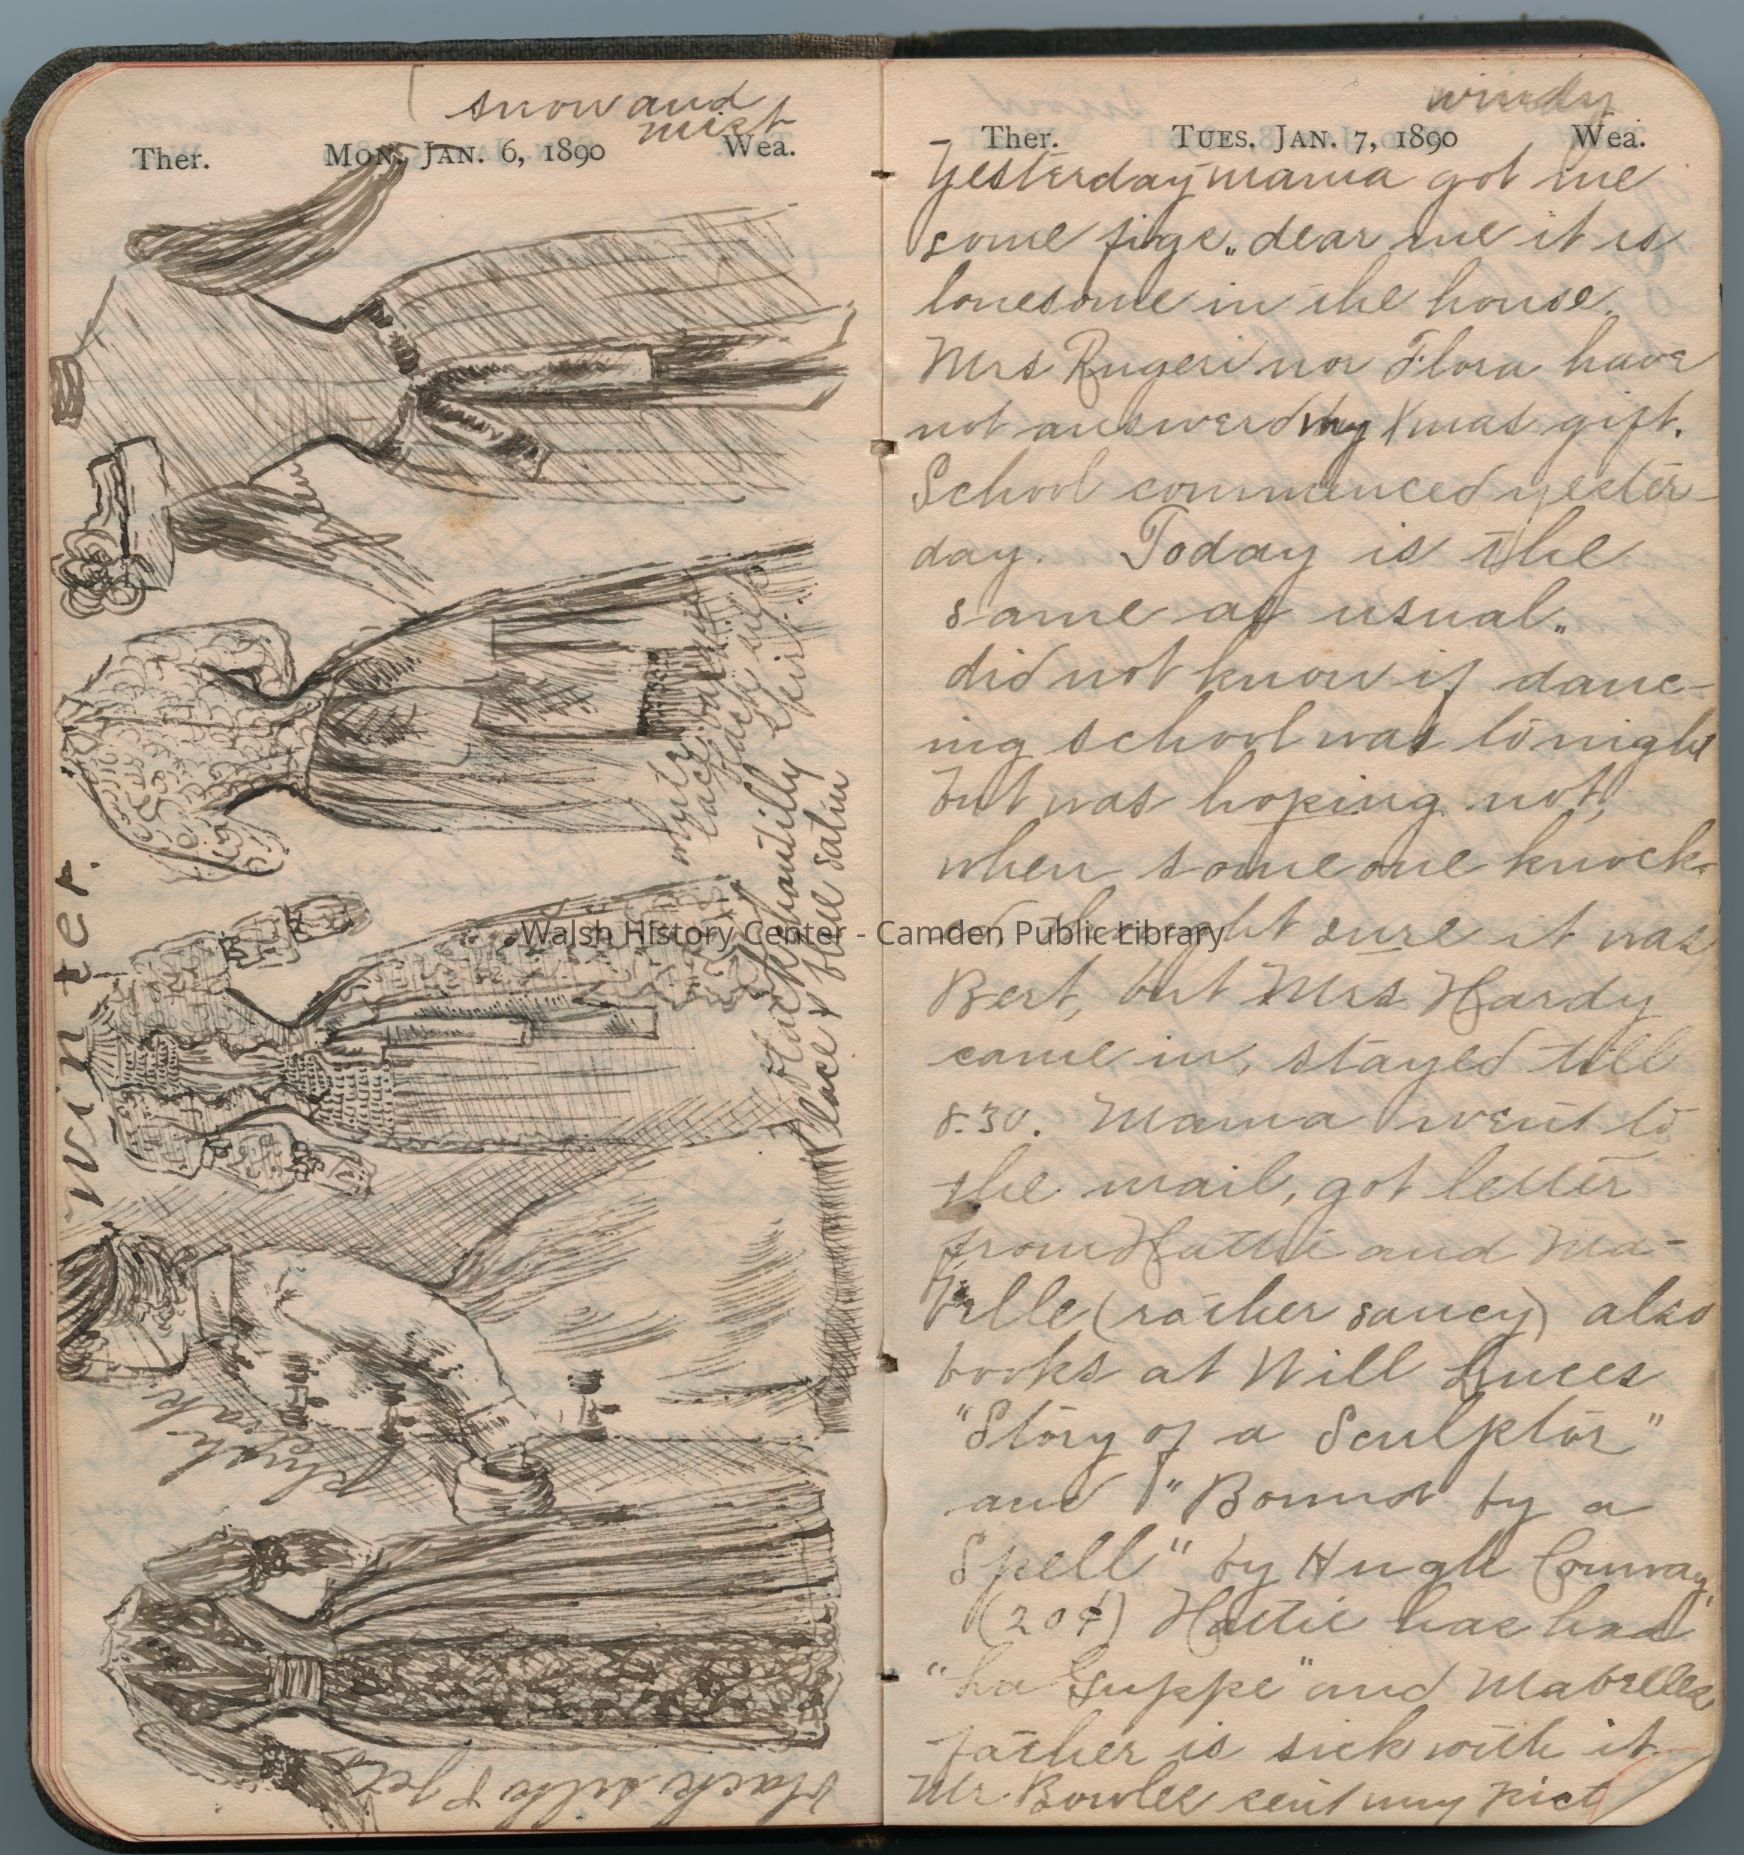 snow and
mist
Ther. MON. JAN. 6, 1890 Wea.
Winter.
white
lace
black silk
skirt
black chantilly
lace & blue satin
plush
black silk & jet
windy
Ther. TUES. JAN. 7, 1890 Wea.
Yesterday mama got me
some figs. dear me it is
lonesome in the house.
Mrs Rugeri nor Flora have
not answerd my Xmas gift.
School commenced yester-
day. Today is the
same as usual.
did not know if danc-
ing school was to night
but was hoping not,
when some one knock-
sure it was
Bert, but Mrs Hardy
came in, stayed till
8.30. Mama went to
the mail, got letter
from Hattie and Ma-
belle (rather saucy) also
books at Will Luces
"Story of a Sculptor"
and "Bound by a
Spell" by Hugh Conway
(20¢) Hattie has had
"La Grippe" and Mabelles
father is sick with it
Mr. Bowlee sent my pict
Walsh History Center - Camden Public Library